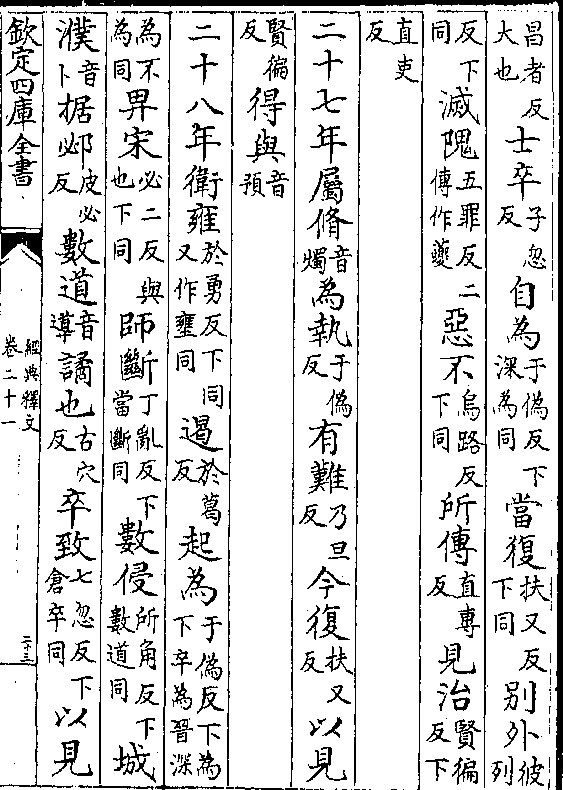 昌者反大也士卒子忽反自為于偽反下深為同當復扶又反下同别外彼列
反下同滅隗五罪反二傳作夔惡不烏路反下同所傳直專反見治賢徧反下
直吏反
二十七年屬脩音燭為執于偽反有難乃旦反今復扶又反以見
賢徧反得與音預
二十八年衛雍於勇反下同又作壅同遏於葛反起為于偽反下為下卒為晉深
為不為同畀宋必二反與也下同師斷丁亂反下當斷同數侵所角反下數道同城
濮音卜据邲皮必反數道音導譎也古穴反卒致七忽反下倉卒同以見
欽定四庫全書
經典釋文
卷二十一
二十三